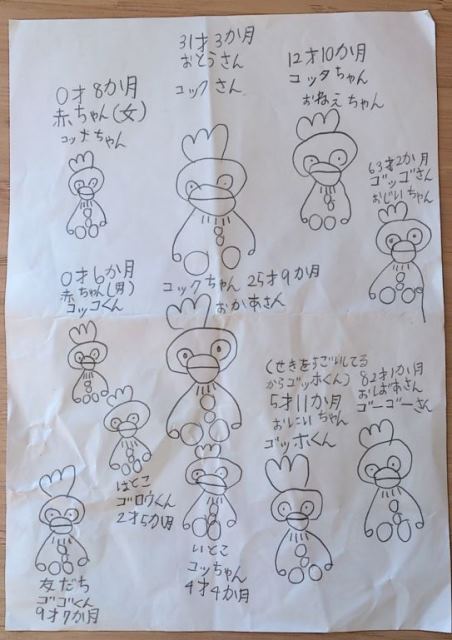 0才8か月
赤ちゃん(女)
コッナちゃん
31才3か月
おとうさん
コックさん
12才10か月
コッタちゃん
おねえちゃん
63才2か月
ゴッゴさん
おじいちゃん
0才6か月
赤ちゃん(男)
コッコくん
コックちゃん 25才9か月
おかあさん
(せきを5ごいしてる
からゴッホくん)
5才11か月
おにいちゃん
ゴッホくん
82才1か月
おばあさん
ゴーゴーさん
はとこ
ゴロウくん
2才5か月
いとこ
コッちゃん
4才4か月
友だち
ゴゴくん
9才7か月